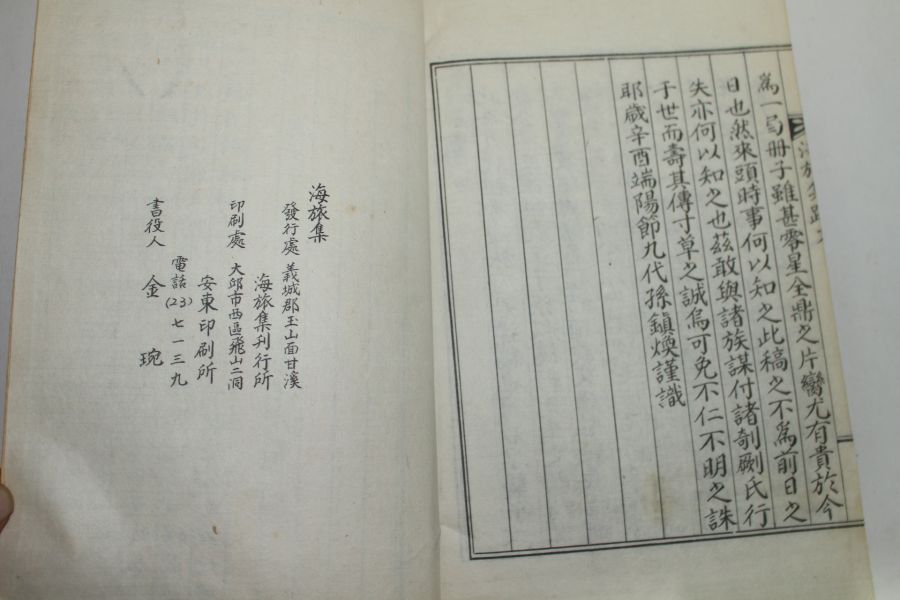 爲一局册子雖甚零星全鼎之片臠尤有貴於今
日也然來頭時事何以知之此稿之不爲前日之
失亦何以知之也茲敢與諸族謀付諸剞劂氏行
于世而壽其傳寸草之誠焉可免不仁不明之誅
耶歲辛酉端陽節九代孫鎭煥謹識
海旅集
發行處 義城郡玉山面甘溪
海旅集刊行所
印刷處 大邱市西區飛山二洞
安東印刷所
電話(23)七一三九
書役人 金琬